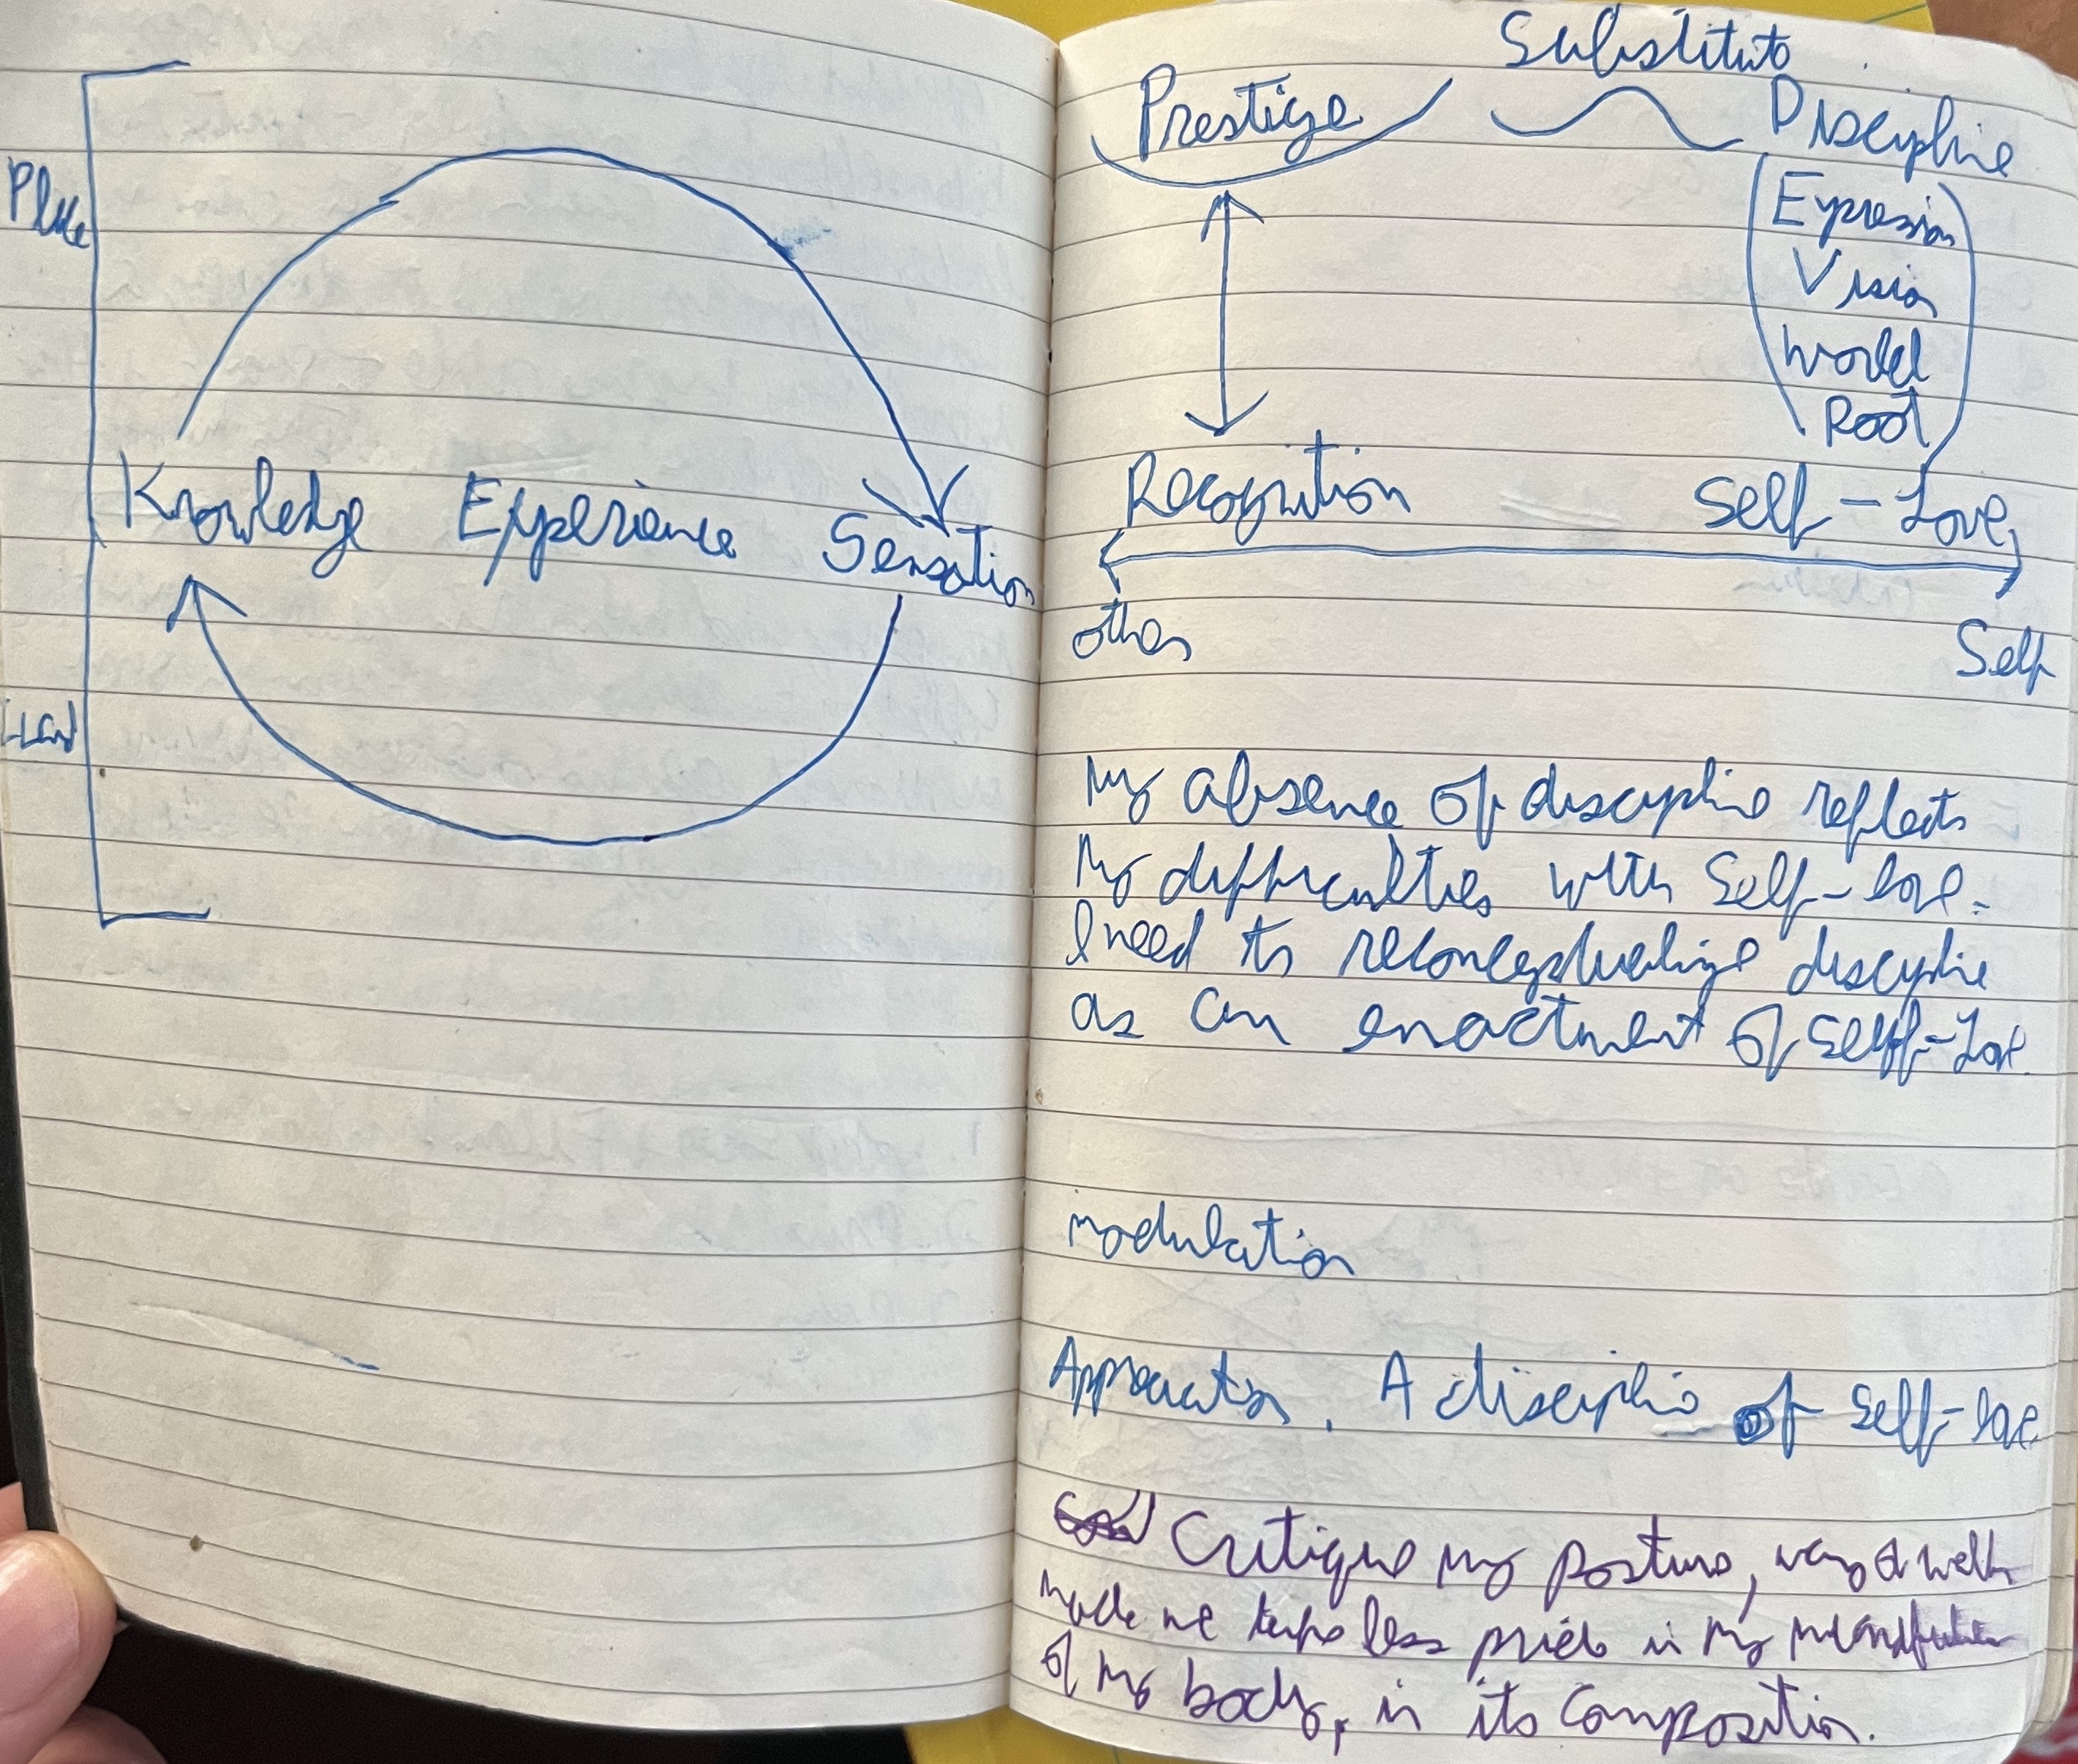 Place
Knowledge Experience Sensation
Substitute
Prestige Discipline
Expression
Vision
World
Root
Recognition Self-Love
other
Self
My absence of discipline reflects
My difficulties with Self-love.
I need to reconceptualize discipline
as an enactment of Self-Love.
modulation
Appreciation. A discipline of Self-love
Critique my posture, way I walk
made me take less pride in my
of my body, in its composition.